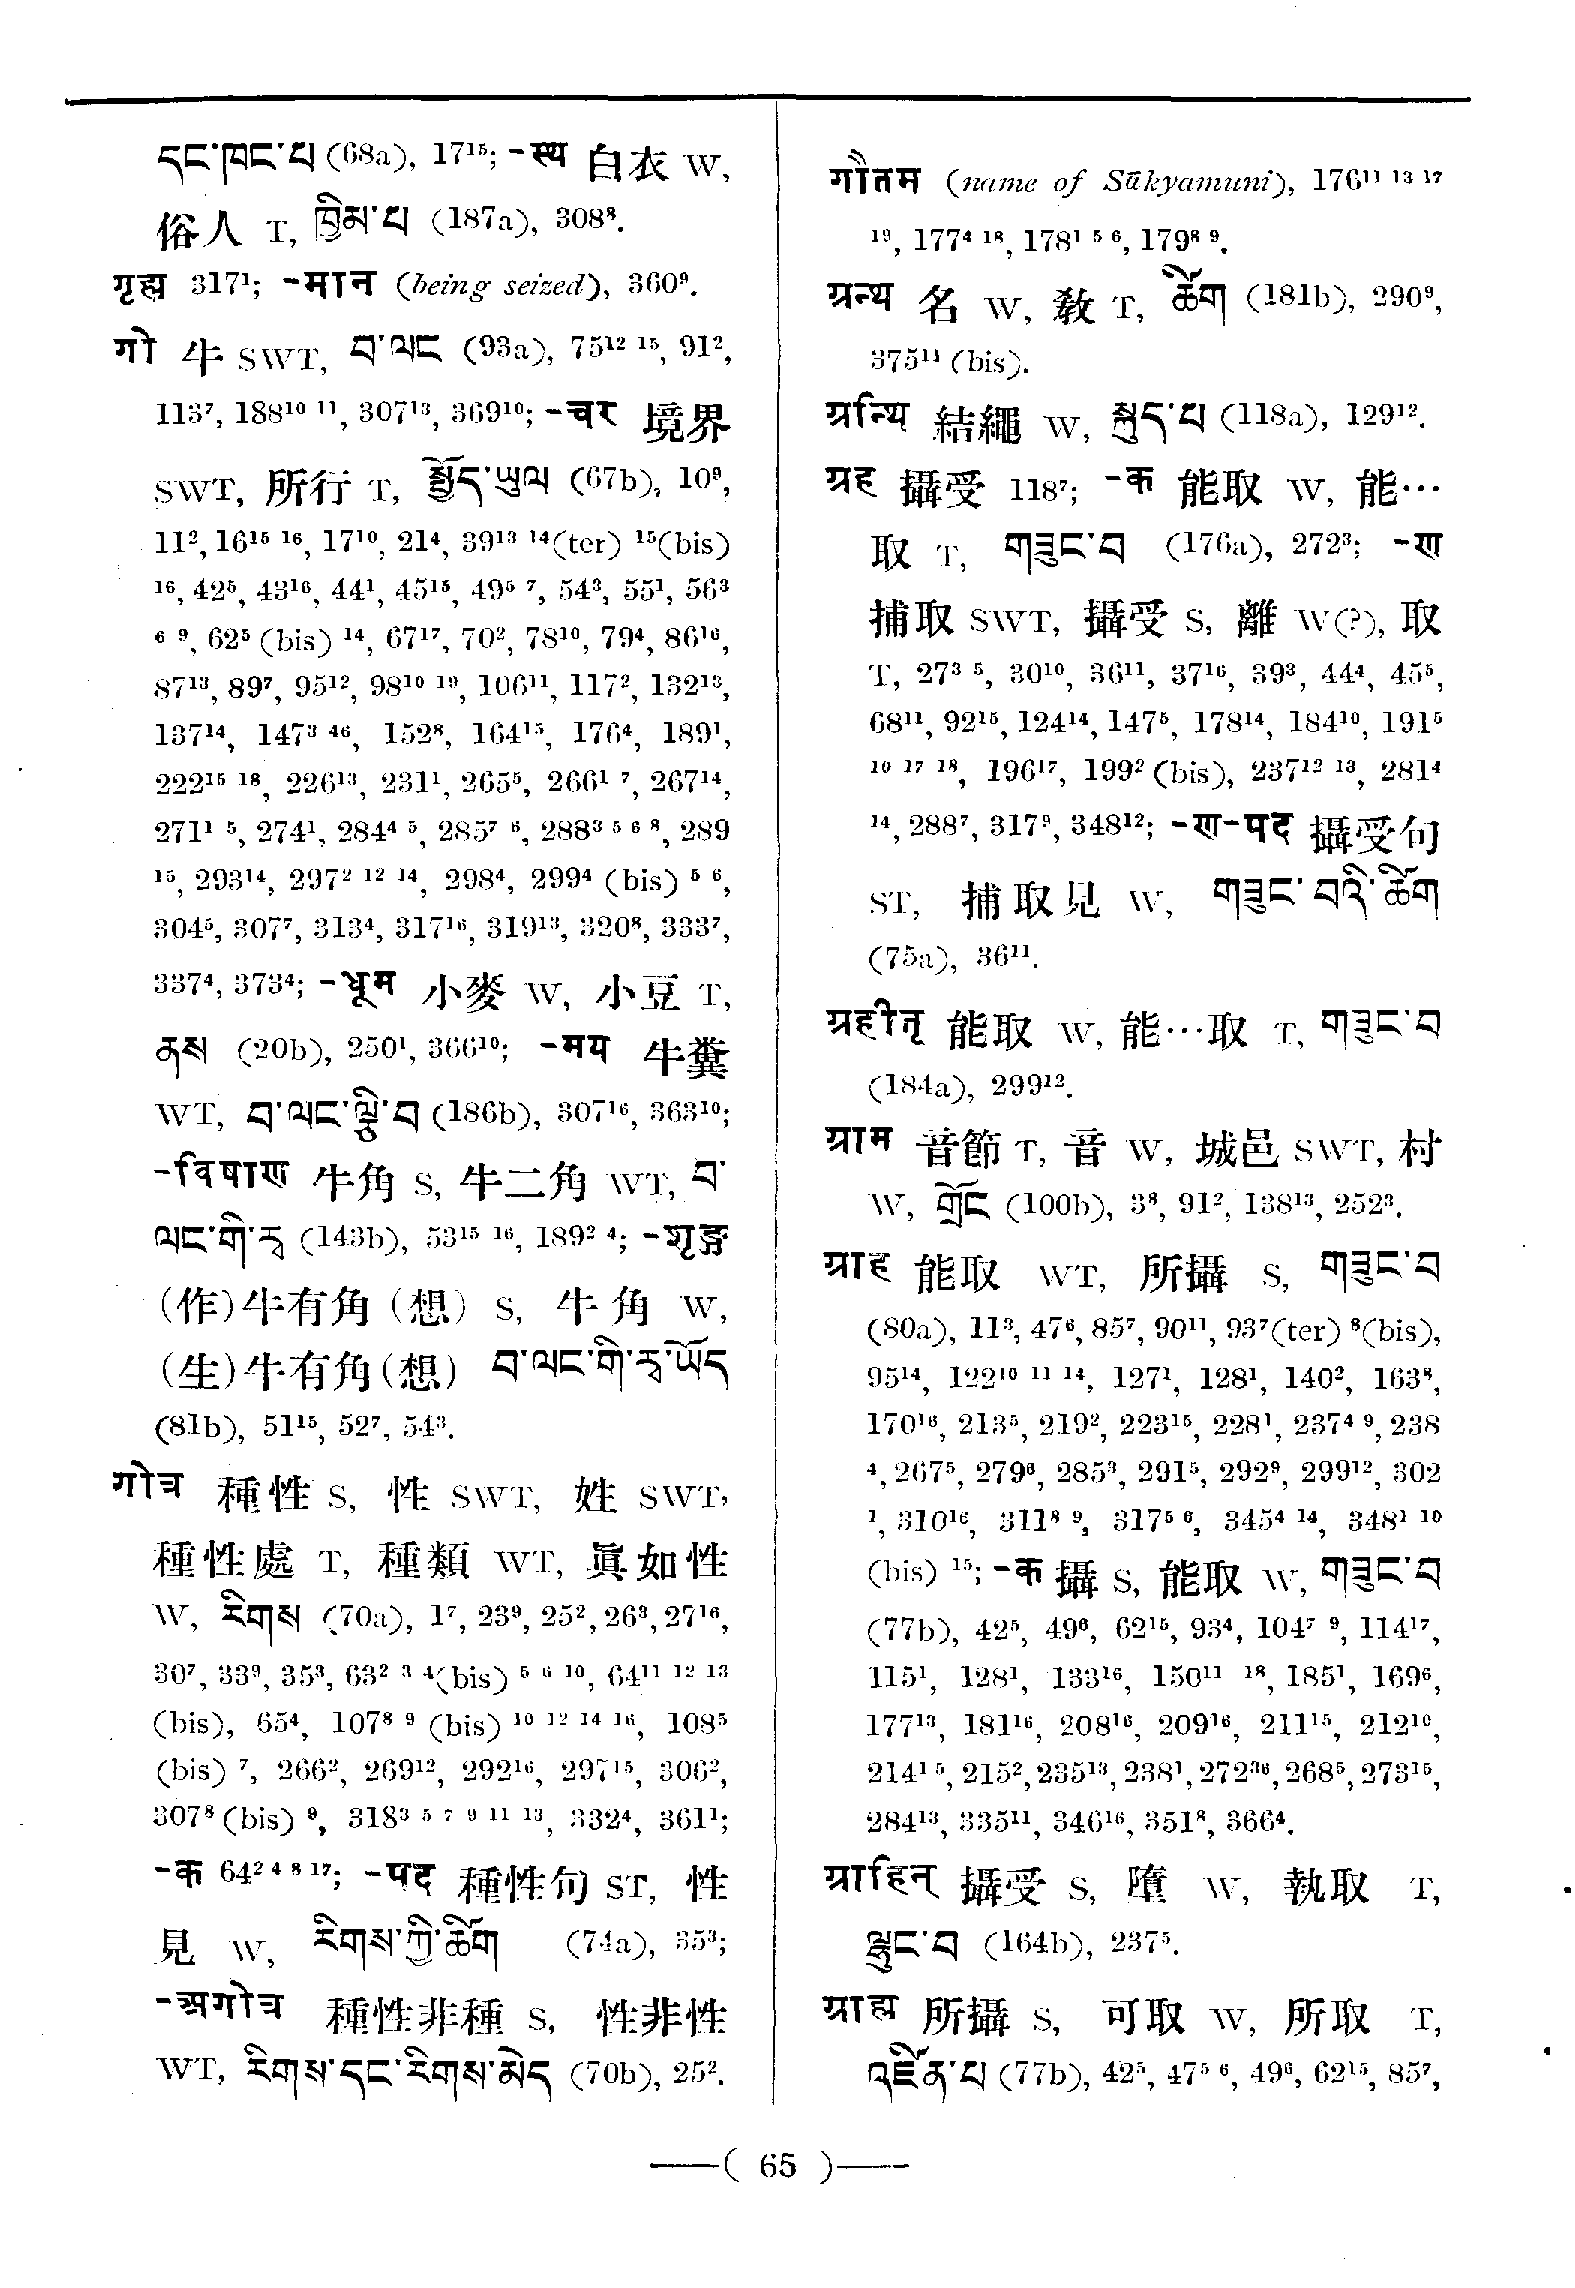 དང་ཁང་པ (68a), 17¹⁵; -स्थ 白衣 W,
俗人 T, ཁྲིམ་པ (187a), 308⁸.
गृह्य 317¹; -मान (being seized), 360⁹.
गो 牛 SWT, བ་ལང (93a), 75¹² ¹⁵, 91²,
113⁷, 188¹⁰ ¹¹, 307¹³, 369¹⁰; -चर 境界
SWT, 所行 T, སྤྱོད་ཡུལ (67b), 10⁹,
11², 16¹⁵ ¹⁶, 17¹⁰, 21⁴, 39¹³ ¹⁴(ter) ¹⁵(bis)
¹⁶, 42⁵, 43¹⁶, 44¹, 45¹⁵, 49⁵ ⁷, 54³, 55¹, 56³
⁶ ⁹, 62⁵ (bis) ¹⁴, 67¹⁷, 70², 78¹⁰, 79⁴, 86¹⁶,
87¹³, 89⁷, 95¹², 98¹⁰ ¹⁹, 106¹¹, 117², 132¹³,
137¹⁴, 147³ ⁴⁶, 152⁸, 164¹⁵, 176⁴, 189¹,
222¹⁵ ¹⁸, 226¹³, 231¹, 265⁵, 266¹ ⁷, 267¹⁴,
271¹ ⁵, 274¹, 284⁴ ⁵, 285⁷ ⁶, 288³ ⁵ ⁶ ⁸, 289
¹⁵, 293¹⁴, 297² ¹² ¹⁴, 298⁴, 299⁴ (bis) ⁵ ⁶,
304⁵, 307⁷, 313⁴, 317¹⁶, 319¹³, 320⁸, 333⁷,
337⁴, 373⁴; -धूम 小麥 W, 小豆 T,
ནས (20b), 250¹, 366¹⁰; -मय 牛糞
WT, བ་ལང་ལྕི་བ (186b), 307¹⁶, 363¹⁰;
-विषाण 牛角 S, 牛二角 WT, བ་
ལང་གི་རྭ (143b), 53¹⁵ ¹⁶, 189² ⁴; -शृङ्ग
(作)牛有角(想) S, 牛角 W,
(生)牛有角(想) བ་ལང་གི་རྭ་ཡོད
(81b), 51¹⁵, 52⁷, 54³.
गोत्र 種性 S, 性 SWT, 姓 SWT,
種性處 T, 種類 WT, 眞如性
W, རིགས (70a), 1⁷, 23⁹, 25², 26³, 27¹⁶,
30⁷, 33⁹, 35³, 63² ³ ⁴(bis) ⁵ ⁶ ¹⁰, 64¹¹ ¹² ¹³
(bis), 65⁴, 107⁸ ⁹ (bis) ¹⁰ ¹² ¹⁴ ¹⁶, 108⁵
(bis) ⁷, 266², 269¹², 292¹⁶, 297¹⁵, 306²,
307⁸ (bis) ⁹, 318³ ⁵ ⁷ ⁹ ¹¹ ¹³, 332⁴, 361¹;
-क 64² ⁴ ⁸ ¹⁷; -पद 種性句 ST, 性
見 W, རིགས་ཀྱི་ཚིག (74a), 35³;
-अगोत्र 種性非種 S, 性非性
WT, རིགས་དང་རིགས་མེད (70b), 25².
गौतम (name of Sākyamuni), 176¹¹ ¹³ ¹⁷
¹⁹, 177⁴ ¹⁸, 178¹ ⁵ ⁶, 179⁸ ⁹.
ग्रन्थ 名 W, 敎 T, ཚིག (181b), 290⁹,
375¹¹ (bis).
ग्रन्थि 結繩 W, སྐུད་པ (118a), 129¹².
ग्रह 攝受 118⁷; -क 能取 W, 能…
取 T, གཟུང་བ (176a), 272³; -ण
捕取 SWT, 攝受 S, 離 W(?), 取
T, 27³ ⁵, 30¹⁰, 36¹¹, 37¹⁶, 39³, 44⁴, 45⁵,
68¹¹, 92¹⁵, 124¹⁴, 147⁵, 178¹⁴, 184¹⁰, 191⁵
¹⁰ ¹⁷ ¹⁸, 196¹⁷, 199² (bis), 237¹² ¹³, 281⁴
¹⁴, 288⁷, 317⁹, 348¹²; -ण-पद 攝受句
ST, 捕取見 W, གཟུང་བའི་ཚིག
(75a), 36¹¹.
ग्रहीतृ 能取 W, 能…取 T, གཟུང་བ
(184a), 299¹².
ग्राम 音節 T, 音 W, 城邑 SWT, 村
W, གྲོང (100b), 3⁸, 91², 138¹³, 252³.
ग्राह 能取 WT, 所攝 S, གཟུང་བ
(80a), 11³, 47⁶, 85⁷, 90¹¹, 93⁷(ter) ⁸(bis),
95¹⁴, 122¹⁰ ¹¹ ¹⁴, 127¹, 128¹, 140², 163⁸,
170¹⁶, 213⁵, 219², 223¹⁵, 228¹, 237⁴ ⁹, 238
⁴, 267⁵, 279⁶, 285³, 291⁵, 292⁹, 299¹², 302
¹, 310¹⁶, 311⁸ ⁹, 317⁵ ⁶, 345⁴ ¹⁴, 348¹ ¹⁰
(bis) ¹⁵; -क 攝 S, 能取 W, གཟུང་བ
(77b), 42⁵, 49⁶, 62¹⁵, 93⁴, 104⁷ ⁹, 114¹⁷,
115¹, 128¹, 133¹⁶, 150¹¹ ¹⁸, 185¹, 169⁶,
177¹³, 181¹⁶, 208¹⁶, 209¹⁶, 211¹⁵, 212¹⁰,
214¹ ⁵, 215², 235¹³, 238¹, 272³⁶, 268⁵, 273¹⁵,
284¹³, 335¹¹, 346¹⁶, 351⁸, 366⁴.
ग्राहिन् 攝受 S, 墮 W, 執取 T,
ལྷུང་བ (164b), 237⁵.
ग्राह्य 所攝 S, 可取 W, 所取 T,
འཛིན་པ (77b), 42⁵, 47⁵ ⁶, 49⁶, 62¹⁵, 85⁷,
——( 65 )——